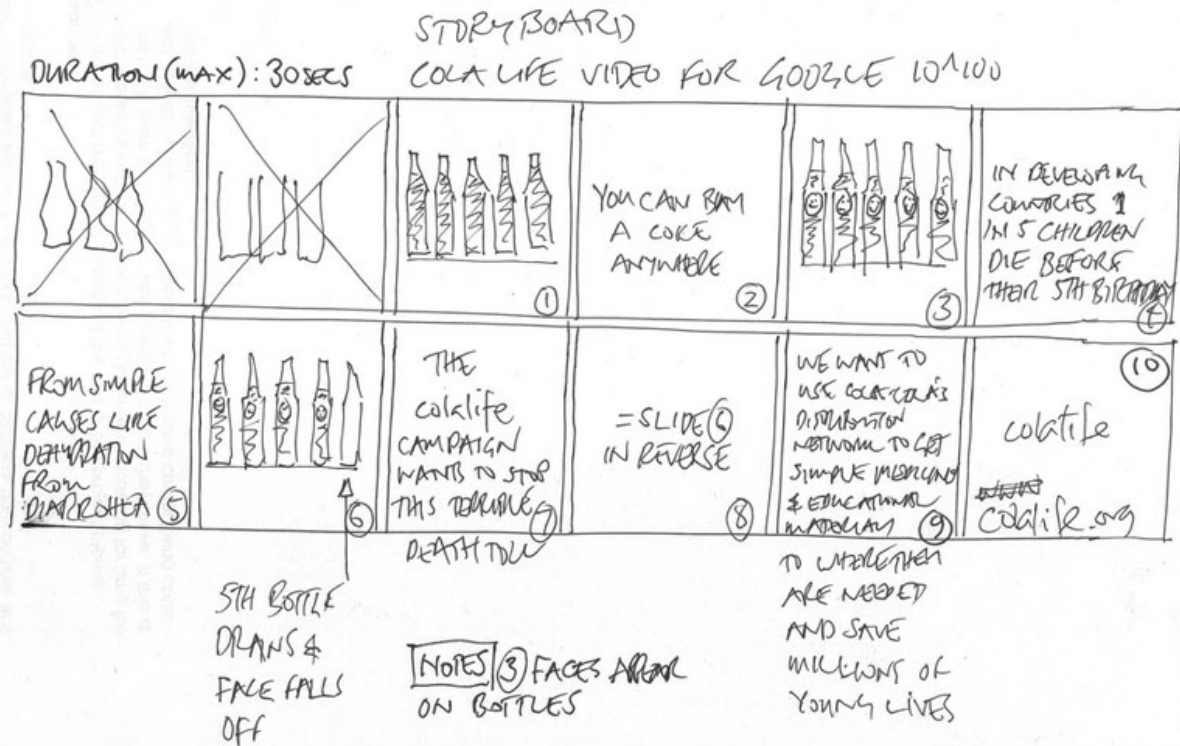 STORYBOARD
DURATION (MAX): 30 SECS
COLA LIFE VIDEO FOR GOOGLE 10^100
①
YOU CAN BUY
A COKE
ANYWHERE
②
③
IN DEVELOPING
COUNTRIES 1
IN 5 CHILDREN
DIE BEFORE
THEIR 5TH BIRTHDAY
④
FROM SIMPLE
CAUSES LIKE
DEHYDRATION
FROM
DIARROHEA ⑤
⑥
5TH BOTTLE
DRAINS &
FACE FALLS
OFF
THE
colalife
CAMPAIGN
WANTS TO STOP
THIS TERRIBLE ⑦
DEATH TOLL
= SLIDE ⑥
IN REVERSE
⑧
WE WANT TO
USE COCA-COLA'S
DISTRIBUTION
NETWORK TO GET
SIMPLE MEDICINES
& EDUCATIONAL
MATERIALS ⑨
TO WHERE THEY
ARE NEEDED
AND SAVE
MILLIONS OF
YOUNG LIVES
⑩
colalife
colalife.org
NOTES ③ FACES APPEAR
ON BOTTLES